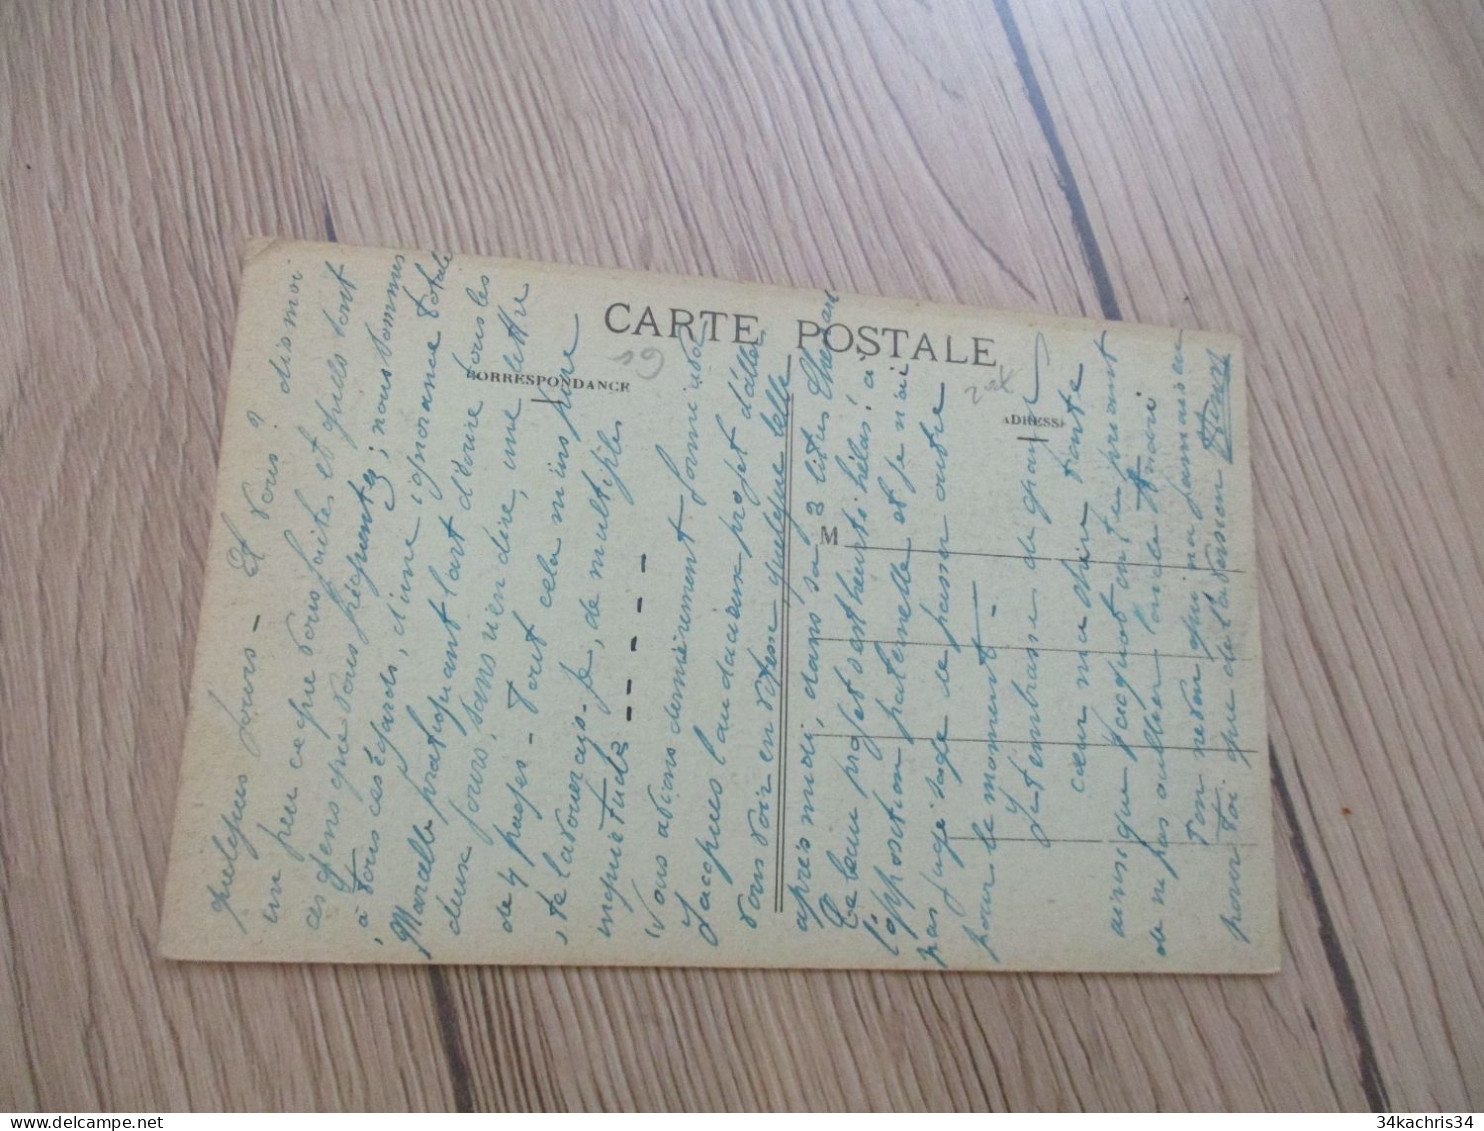 CARTE POSTALE
CORRESPONDANCE
ADRESSE
M
19
quelques jours - Et vous ? dis moi
un peu ce que vous faites et quels sont
ces gens que vous fréquentez ; nous sommes
à tous ces égards, d'une ignorance totale
Marcelle pratiquant l'art d'écrire tous les
deux jours, sans rien dire, une lettre
de 4 pages - Tout cela m'inspire
, te l'avouerais-je, de multiples
inquiétudes
Nous avions dernièrement formé avec
Jacques l'audacieux projet d'aller
vous voir en votre quelque
après midi, dans sa 3 litres
Ce beau projet s'est heurté hélas, à
l'opposition paternelle et je n'ai
pas jugé sage de passer outre
pour le moment -
Je t'embrasse de
cœur ma chère tante
ainsi que Jacquot en te priant
de ne pas oublier l'oncle André
ton neveu qui n'a jamais eu
pour toi que de l'aversion
34kachris34